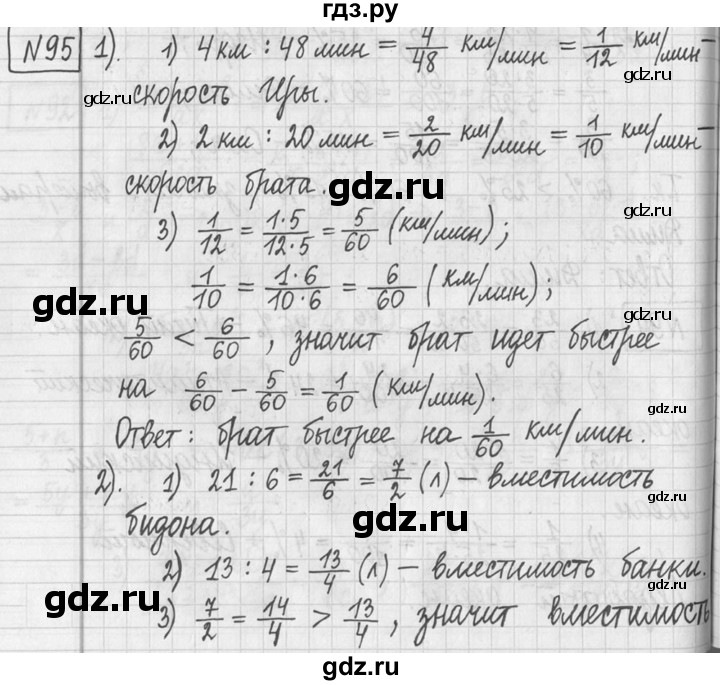 гдз.ру
N95 1). 1) 4 км : 48 мин = 4/48 км/мин = 1/12 км/мин –
скорость Иры.
2) 2 км : 20 мин = 2/20 км/мин = 1/10 км/мин –
скорость брата.
gdz.ru
3) 1/12 = 1·5/12·5 = 5/60 (км/мин);
gdz.ru
1/10 = 1·6/10·6 = 6/60 (км/мин);
gdz.ru
5/60 < 6/60, значит брат идет быстрее
на 6/60 − 5/60 = 1/60 (км/мин).
gdz.ru
Ответ: брат быстрее на 1/60 км/мин.
2). 1) 21 : 6 = 21/6 = 7/2 (л) – вместимость
gdz.ru
бидона.
gdz.ru
2) 13 : 4 = 13/4 (л) – вместимость банки.
gdz.ru
3) 7/2 = 14/4 > 13/4, значит вместимость
gdz.ru
gdz.ru